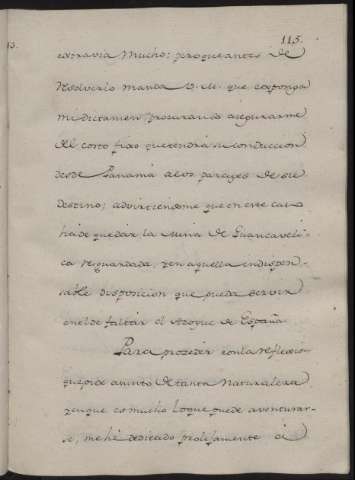 115.
estravia mucho; pero que antes de
resolverlo manda S. M. que exponga
mi dictamen procurando asegurarme
del costo fixo que tendrá su conduccion
desde Panamá a los parages de su
destino; advirtiendome que en este caso
ha de quedar la mina de Guancaveli-
ca resguardada, y en aquella indispen-
sable disposicion que pueda servir
en el de faltar el Azogue de España.
Para proceder con la reflexion
que pide asunto de tanta naturaleza
y en que es mucho lo que puede aventurar-
se, me hé dedicado prolijamente á